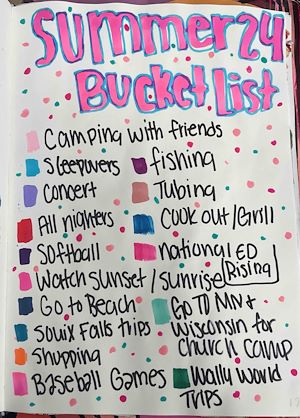 Summer24
Bucket List
Camping with friends
Sleepovers
fishing
Concert
Tubing
All nighters
Cook out/Grill
Softball
national ED
Rising
Watch sunset/sunrise
Go to Beach
Go TO MN &
Wisconsin for
Church Camp
Souix Falls trips
Shopping
Baseball Games
Wally World
Trips